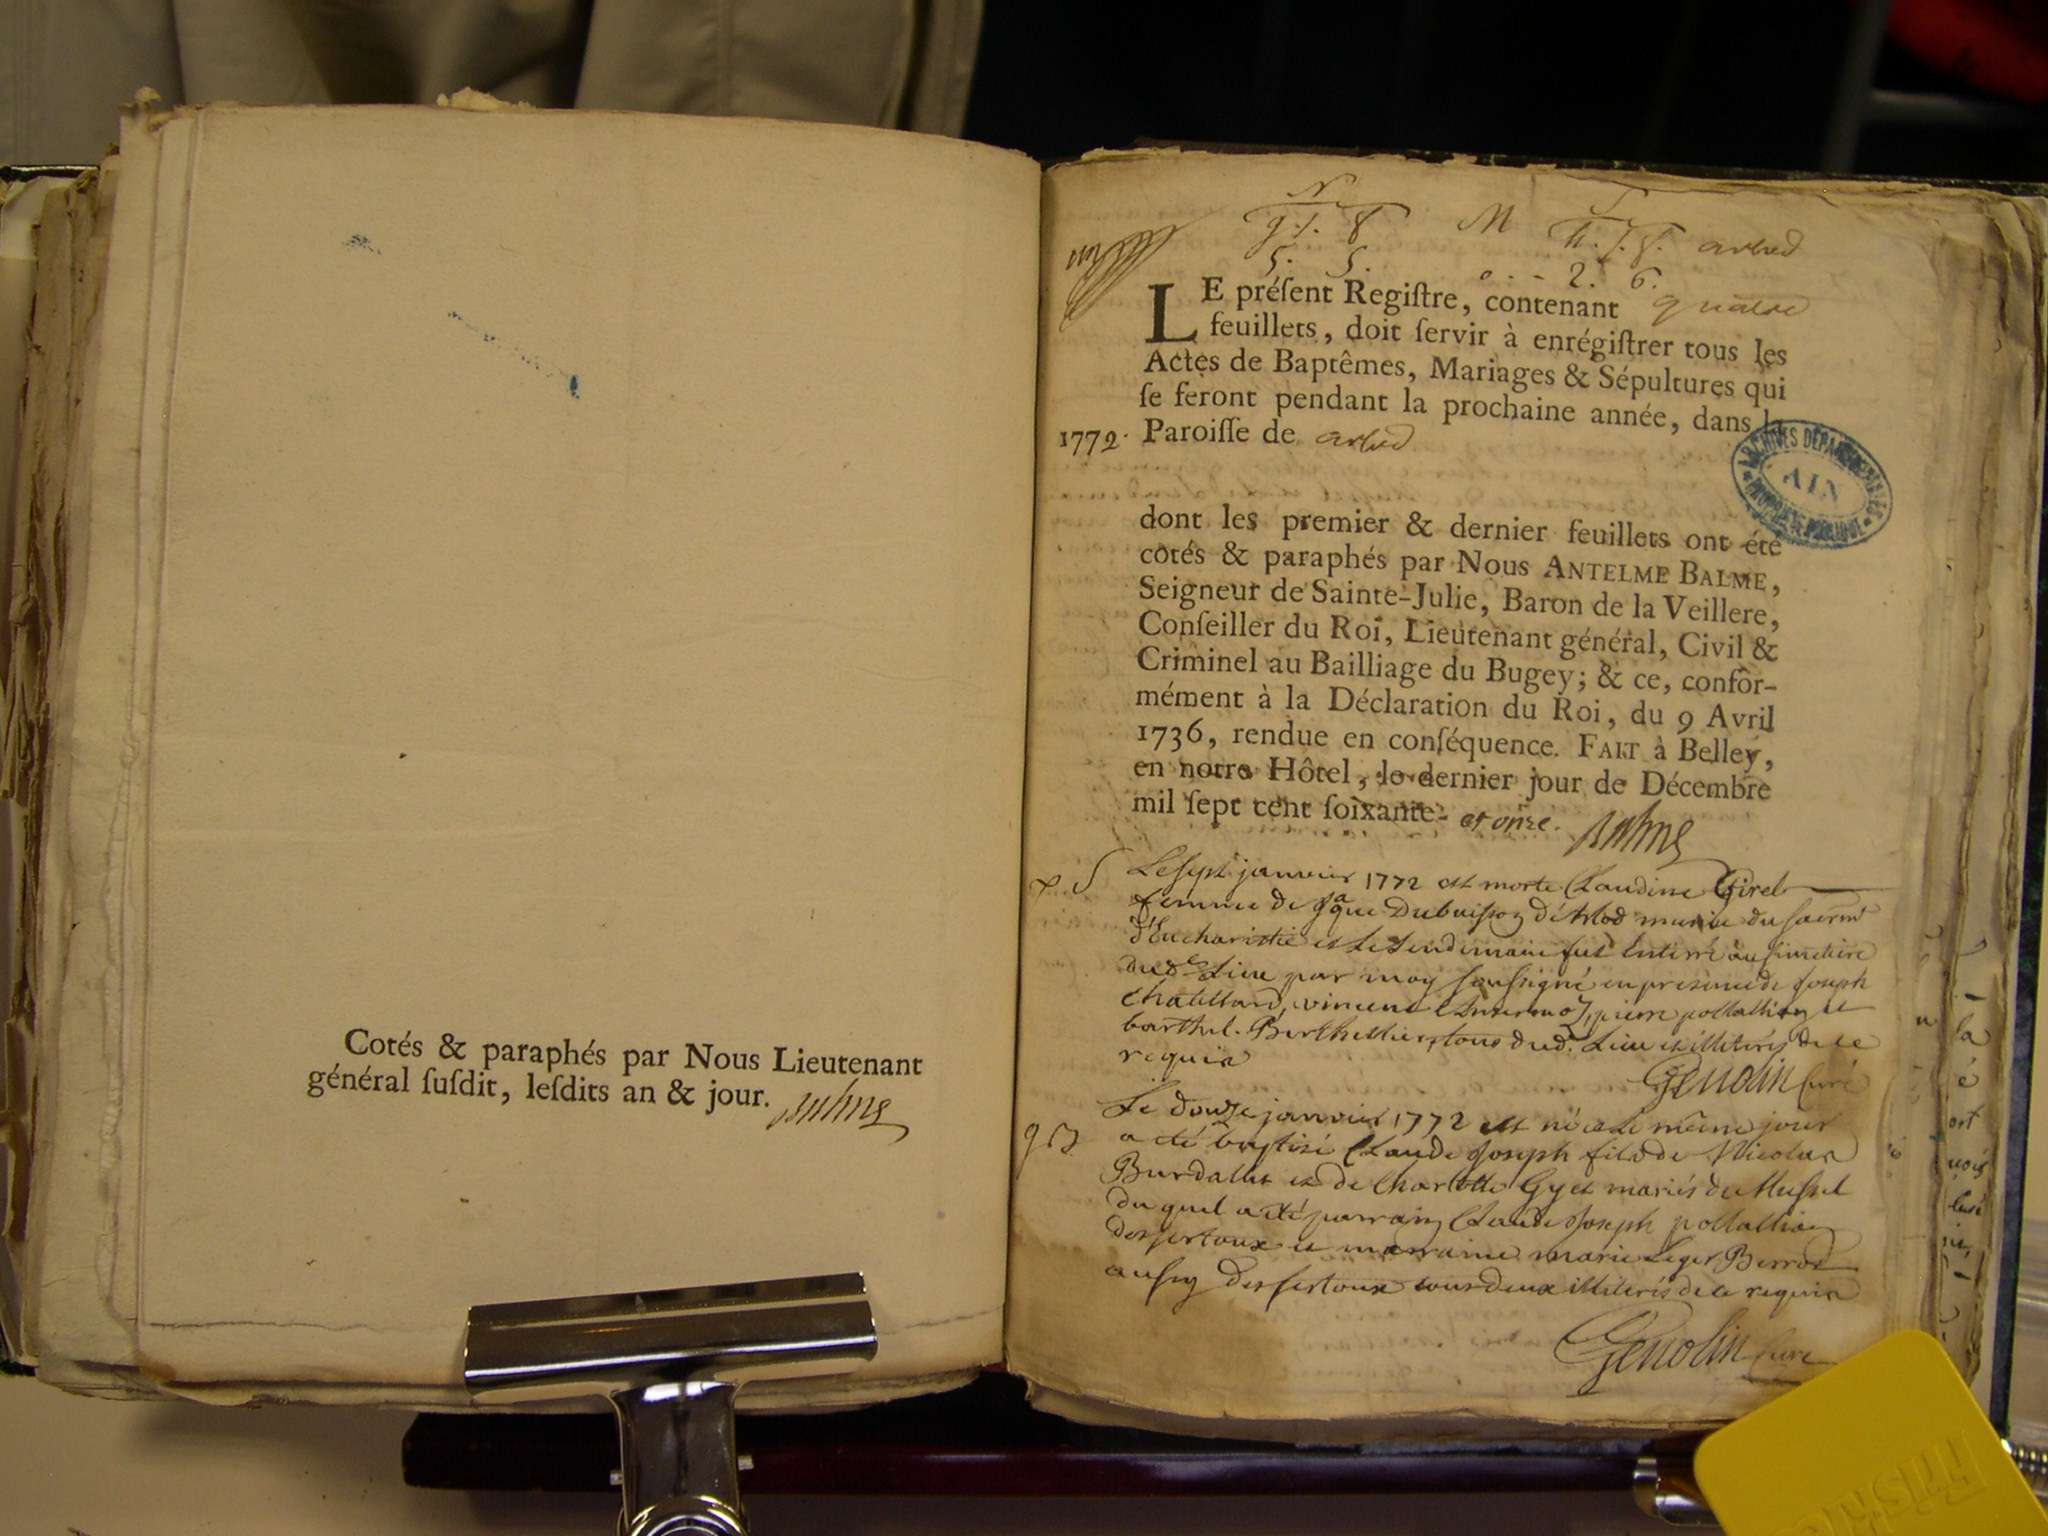 Cotés & paraphés par Nous Lieutenant
général ſuſdit, leſdits an & jour. Balme
N M
g. 1. 8 h. 7. 8. arlod
5. 5. 0 - - 2. 6.
LE préſent Regiſtre, contenant quatre
feuillets, doit ſervir à enrégiſtrer tous les
Actes de Baptêmes, Mariages & Sépultures qui
ſe feront pendant la prochaine année, dans la
1772. Paroiſſe de arlod
ARCHIVES DÉPARTEMENTALES
AIN
PROPRIÉTÉ PUBLIQUE
dont les premier & dernier feuillets ont été
cotés & paraphés par Nous ANTELME BALME,
Seigneur de Sainte-Julie, Baron de la Veillere,
Conſeiller du Roi, Lieutenant général, Civil &
Criminel au Bailliage du Bugey; & ce, confor-
mément à la Déclaration du Roi, du 9 Avril
1736, rendue en conſéquence. FAIT à Belley,
en notre Hôtel, le dernier jour de Décembre
mil ſept cent ſoixante- et onze. Balme
S Le sept janvier 1772 est morte Claudine Giret
femme de Jaque Dubuisson d'Arlod munie du sacrmt
d'Eucharistie et le lendemain fut enterré au simetiere
dud. Lieu par moy soussigné en presence de joseph
Chatillard, vincent pierre pollallion et
barthel. Berthellier, tous dud. Lieu et illiterés de ce
requis
Genolin curé
Le douze janvier 1772 est né et le même jour
a été baptisé Claude joseph fils de Nicolas
Burdallet et de Charlotte Gyet mariés du Mussel
du quel a été parrain Claude joseph pollallion
dessertoux et marraine marie Leger Berrod
aussy dessertoux tous deux illiterés de ce requis
Genolin curé
FUJISHIC